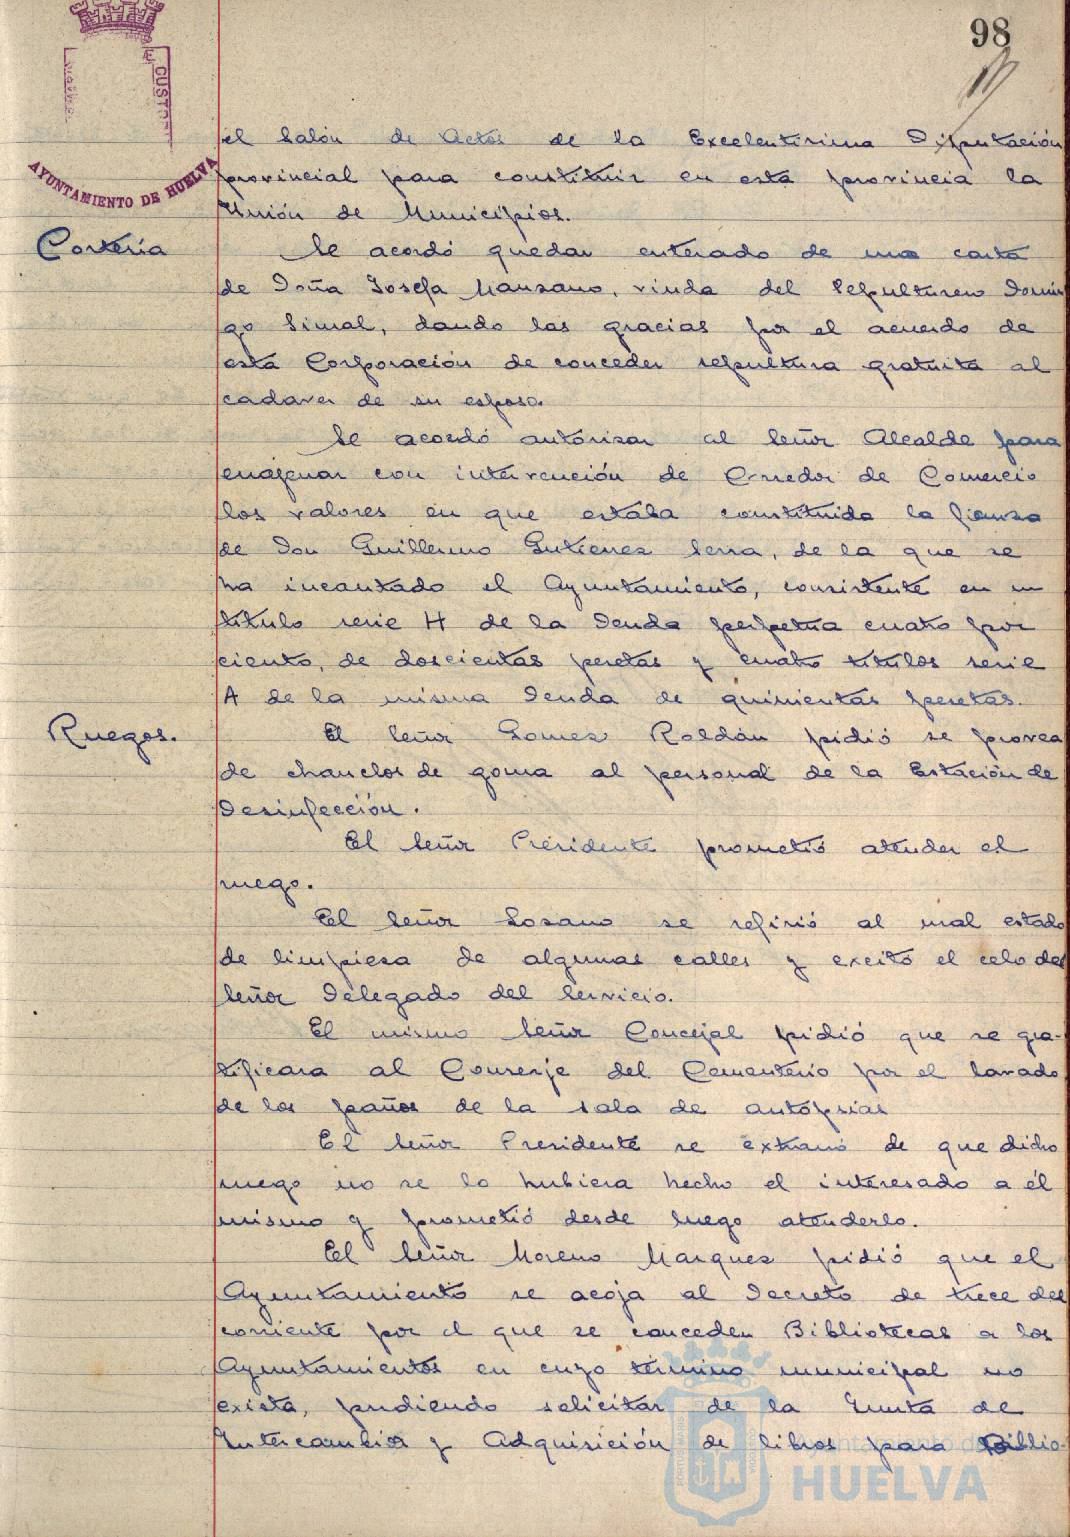 98
CUSTO
AYUNTAMIENTO DE HUELVA
el Salón de Actos de la Excelentisima Diputación
provincial para constituir en esta provincia la
Unión de Municipios.
Cortería
Se acordó quedar enterado de una carta
de Doña Josefa Manzano, viuda del Sepulturero Domin
go Simal, dando las gracias por el acuerdo de
esta Corporación de conceder sepultura gratuita al
cadaver de su esposo.
Se acordó autorizar al Señor Alcalde para
enajenar con intervención de Corredor de Comercio
los valores en que estaba constituida la fianza
de Don Guillermo Gutierrez Serra, de la que se
ha incautado el Ayuntamiento, consistente en un
titulo serie H de la Deuda perpetua cuatro por
ciento, de doscientas pesetas y cuatro titulos serie
A de la misma Deuda de quinientas pesetas.
Ruegos.
El Señor Gomez Roldán pidió se provea
de chanclos de goma al personal de la Estación de
Desinfección.
El Señor Presidente prometió atender el
ruego.
El Señor Lozano se refirió al mal estado
de limpieza de algunas calles y excitó el celo del
Señor Delegado del Servicio.
El mismo Señor Concejal pidió que se gra-
tificara al Conserje del Cementerio por el lavado
de los paños de la sala de autópsias
El Señor Presidente se extrañó de que dicho
ruego no se lo hubiera hecho el interesado a él
mismo y prometió desde luego atenderlo.
El Señor Moreno Marquez pidió que el
Ayuntamiento se acoja al Decreto de trece del
corriente por el que se conceden Bibliotecas a los
Ayuntamientos en cuyo término municipal no
exista, pudiendo solicitar de la Junta de
Intercambio y Adquisición de libros para Biblio-
Ayuntamiento de
HUELVA